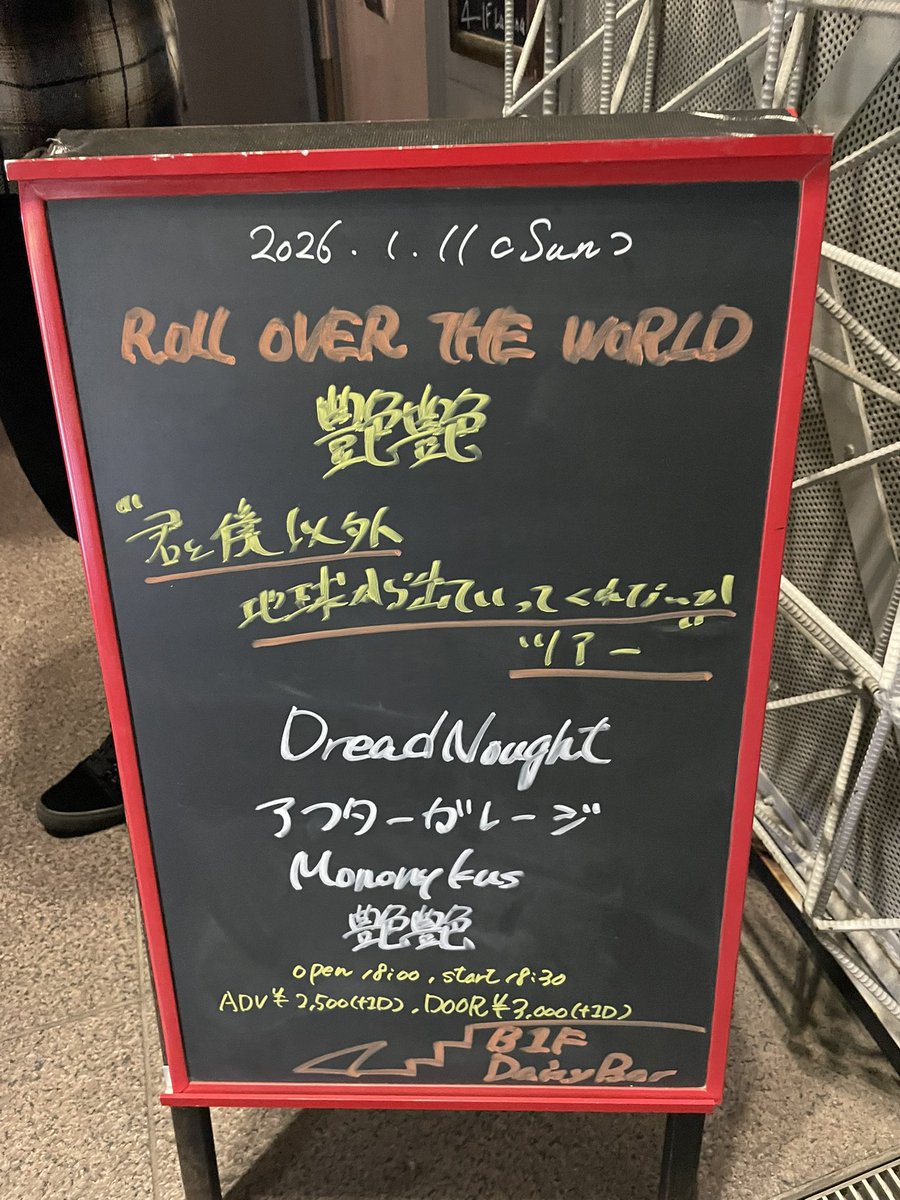 2026.1.11(Sun)
ROLL OVER THE WORLD
艶艶
"君と僕以外
地球から出ていってくれてぃーっ!
ツアー"
DreadNought
アフターガレージ
Mononykus
艶艶
open 18:00, start 18:30
ADV¥2,500(+1D), DOOR¥3,000(+1D)
B1F
DaisyBar